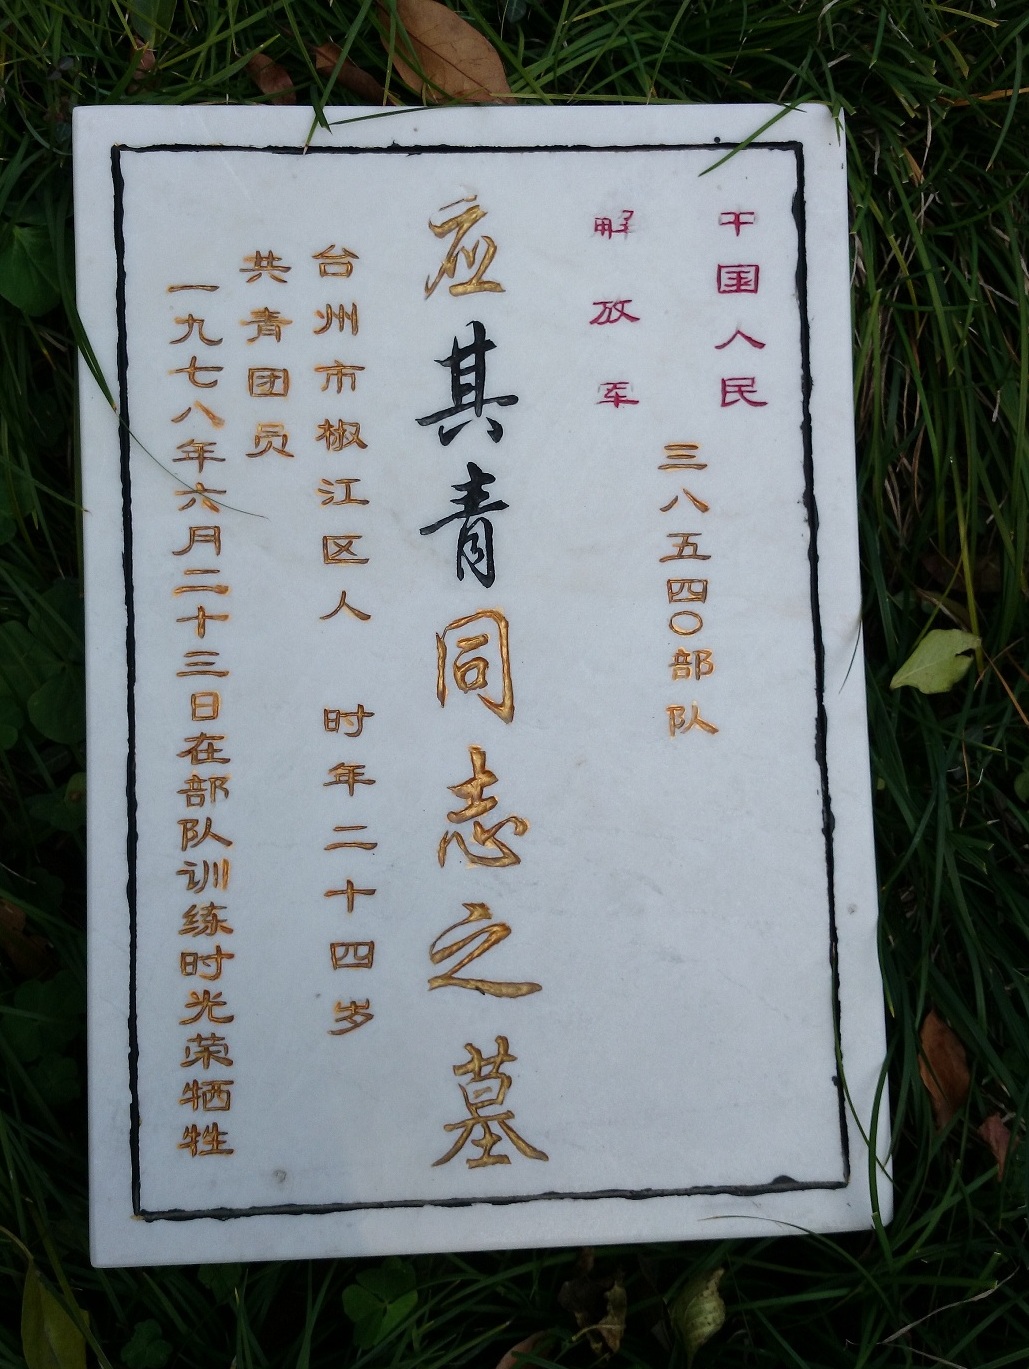 中国人民
解放军
三八五四〇部队
应其青同志之墓
台州市椒江区人 时年二十四岁
共青团员
一九七八年六月二十三日在部队训练时光荣牺牲